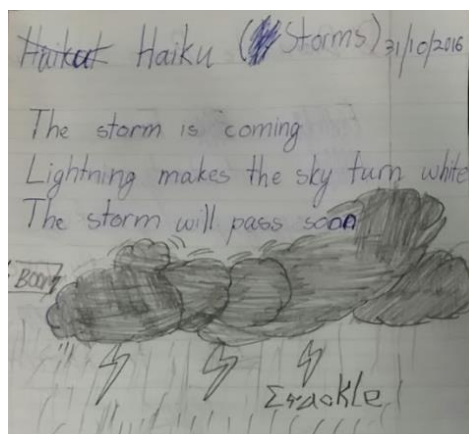 Haikut Haiku (Storms) 31/10/2016
The storm is coming
Lightning makes the sky turn white
The storm will pass soon
BOOM
Crackle